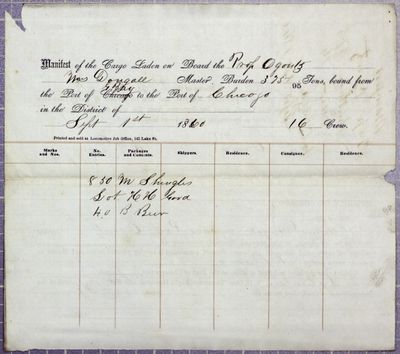 Manifest of the Cargo Laden on Board the Prop Ogontz
Wm Dougall Master, Burden 375 95 Tons, bound from
the Port of Chicago to the Port of Chicago
in the District of
Sept 1st 1860 16 Crew.
Printed and sold at Locomotive Job Office, 143 Lake St.
Marks and Nos. No. Entries. Packages and Contents. Shippers. Residence. Consignee. Residence.
850 M Shingles
Lot H H Good
40 B Beer